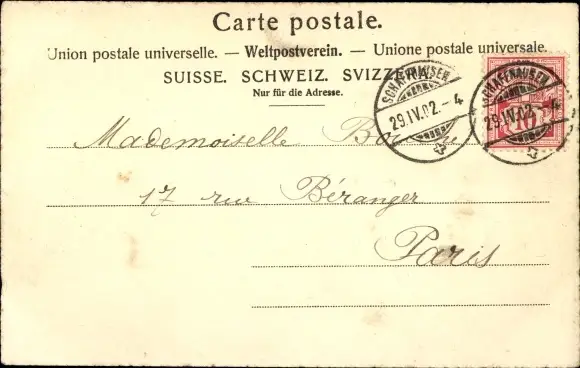 Carte postale.
Union postale universelle. — Weltpostverein. — Unione postale universale.
SUISSE. SCHWEIZ. SVIZZERA.
Nur für die Adresse.
SCHAFFHAUSEN
29.IV.02.–4
SCHAFFHAUSEN
29.IV.02.–4
10
Mademoiselle
17 rue Béranger
Paris